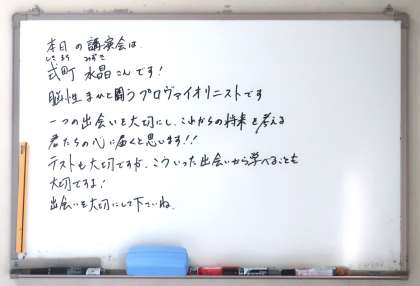 本日の講演会は
しきまち みずき
式町 水晶さんです!
脳性まひと闘うプロヴァイオリニストです
一つの出会いを大切にし、これからの将来を考える
君たちの心に届くと思います!!
テストも大切ですが、こういった出会いから学べることも
大切ですよ!
出会いを大切にして下さいね。